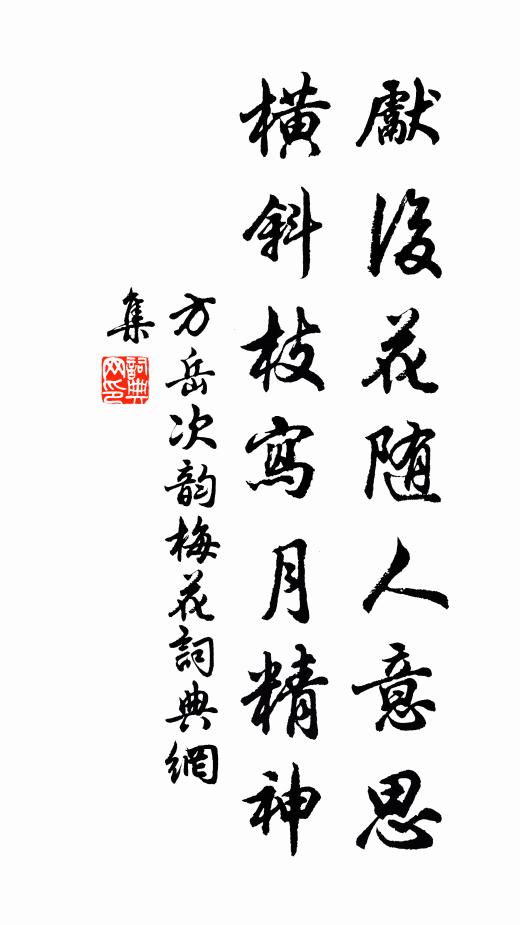 獻後花随人意思
横斜枝寫月精神
方岳次韵梅花詞典網
集
詞典
网印